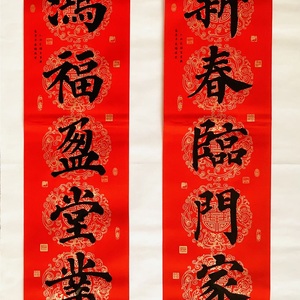 新春臨門家
鴻福盈堂業